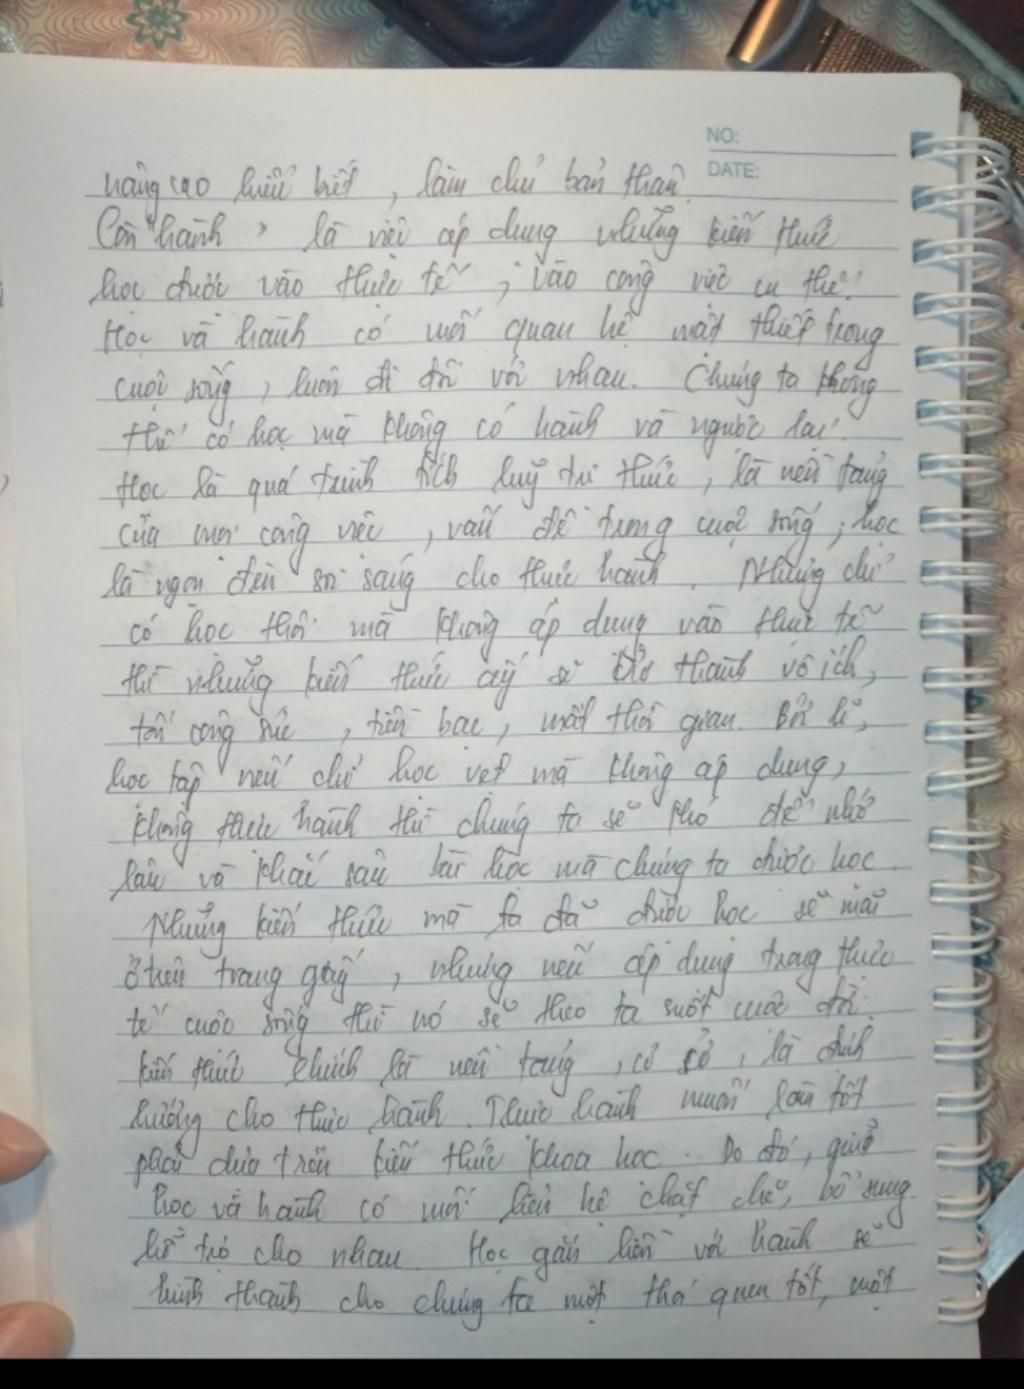 NO:
DATE:
nâng cao hiểu biết, làm chủ bản thân.
Còn "hành" là việc áp dụng những kiến thức
học được vào thực tế, vào công việc cụ thể.
Học và hành có mối quan hệ mật thiết trong
cuộc sống, luôn đi đôi với nhau. Chúng ta không
thể có học mà không có hành và ngược lại.
Học là quá trình tích luỹ tri thức, là nền tảng
của mọi công việc, vấn đề trong cuộc sống, học
là ngọn đèn soi sáng cho thực hành. Nhưng chỉ
có học thôi mà không áp dụng vào thực tế
thì những kiến thức ấy sẽ trở thành vô ích,
tốn công sức, tiền bạc, mất thời gian. Bởi lẽ,
học tập nếu chỉ học vẹt mà không áp dụng,
không thực hành thì chúng ta sẽ khó để nhớ
lâu và khắc sâu bài học mà chúng ta được học.
Những kiến thức mà ta đã được học sẽ mãi
ở trên trang giấy, nhưng nếu áp dụng trong thực
tế cuộc sống thì nó sẽ theo ta suốt cuộc đời.
kiến thức chính là nền tảng, cơ sở, là định
hướng cho thực hành. Thực hành muốn làm tốt
phải dựa trên kiến thức khoa học. Do đó, giữa
học và hành có mối liên hệ chặt chẽ, bổ sung
hỗ trợ cho nhau. Học gắn liền với hành sẽ
hình thành cho chúng ta một thói quen tốt, một